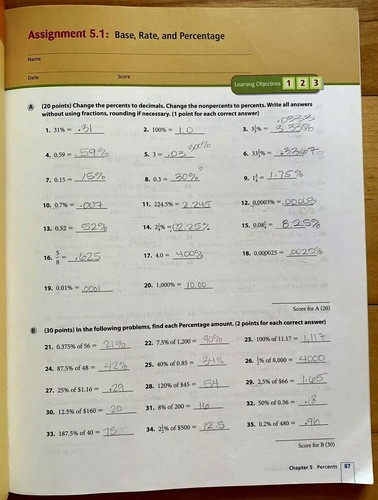 Assignment 5.1: Base, Rate, and Percentage
Name
Date Score
Learning Objectives 1 2 3
A (20 points) Change the percents to decimals. Change the nonpercents to percents. Write all answers
without using fractions, rounding if necessary. (1 point for each correct answer)
.0333
1. 31% = .31 2. 100% = 1.0 3. 3⅓% = 3.33%
300%
4. 0.59 = 59% 5. 3 = .03 6. 33⅓% = .3367
7. 0.15 = 15% 8. 0.3 = 30% 9. 1¾ = 1.75%
10. 0.7% = .007 11. 224.5% = 2.245 12. 0.0003% =
13. 0.52 = 52% 14. 2¼% = 02.25% 15. 0.08¼ = 8.25%
16. 5/8 = .625 17. 4.0 = 400% 18. 0.000025 = .0025%
19. 0.01% = .0001 20. 1,000% = 10.00
Score for A (20)
B (30 points) In the following problems, find each Percentage amount. (2 points for each correct answer)
21. 0.375% of 56 = 21% 22. 7.5% of 1,200 = 90% 23. 100% of 11.17 = 1.117
24. 87.5% of 48 = 42% 25. 40% of 0.85 = 34% 26. ½% of 8,000 = 4000
27. 25% of $1.16 = .29 28. 120% of $45 = 54 29. 2.5% of $66 = 1.65
30. 12.5% of $160 = 20 31. 8% of 200 = 16 32. 50% of 0.36 = .18
33. 187.5% of 40 = 34. 2½% of $500 = 12.5 35. 0.2% of 480 = .96
Score for B (30)
Chapter 5 Percents 87